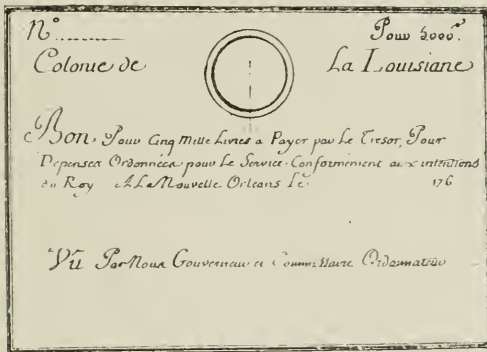 N.º ......... Pour 5000.ᵗ
Colonie de La Louisiane
Bon, Pour Cinq Mille Livres a Payer par Le Tresor, Pour
Depenses Ordonnées pour Le Service Conformement aux intentions
du Roy A La Nouvelle Orleans Le 176
Vû Par Nous Gouverneur et Commissaire Ordonnateur